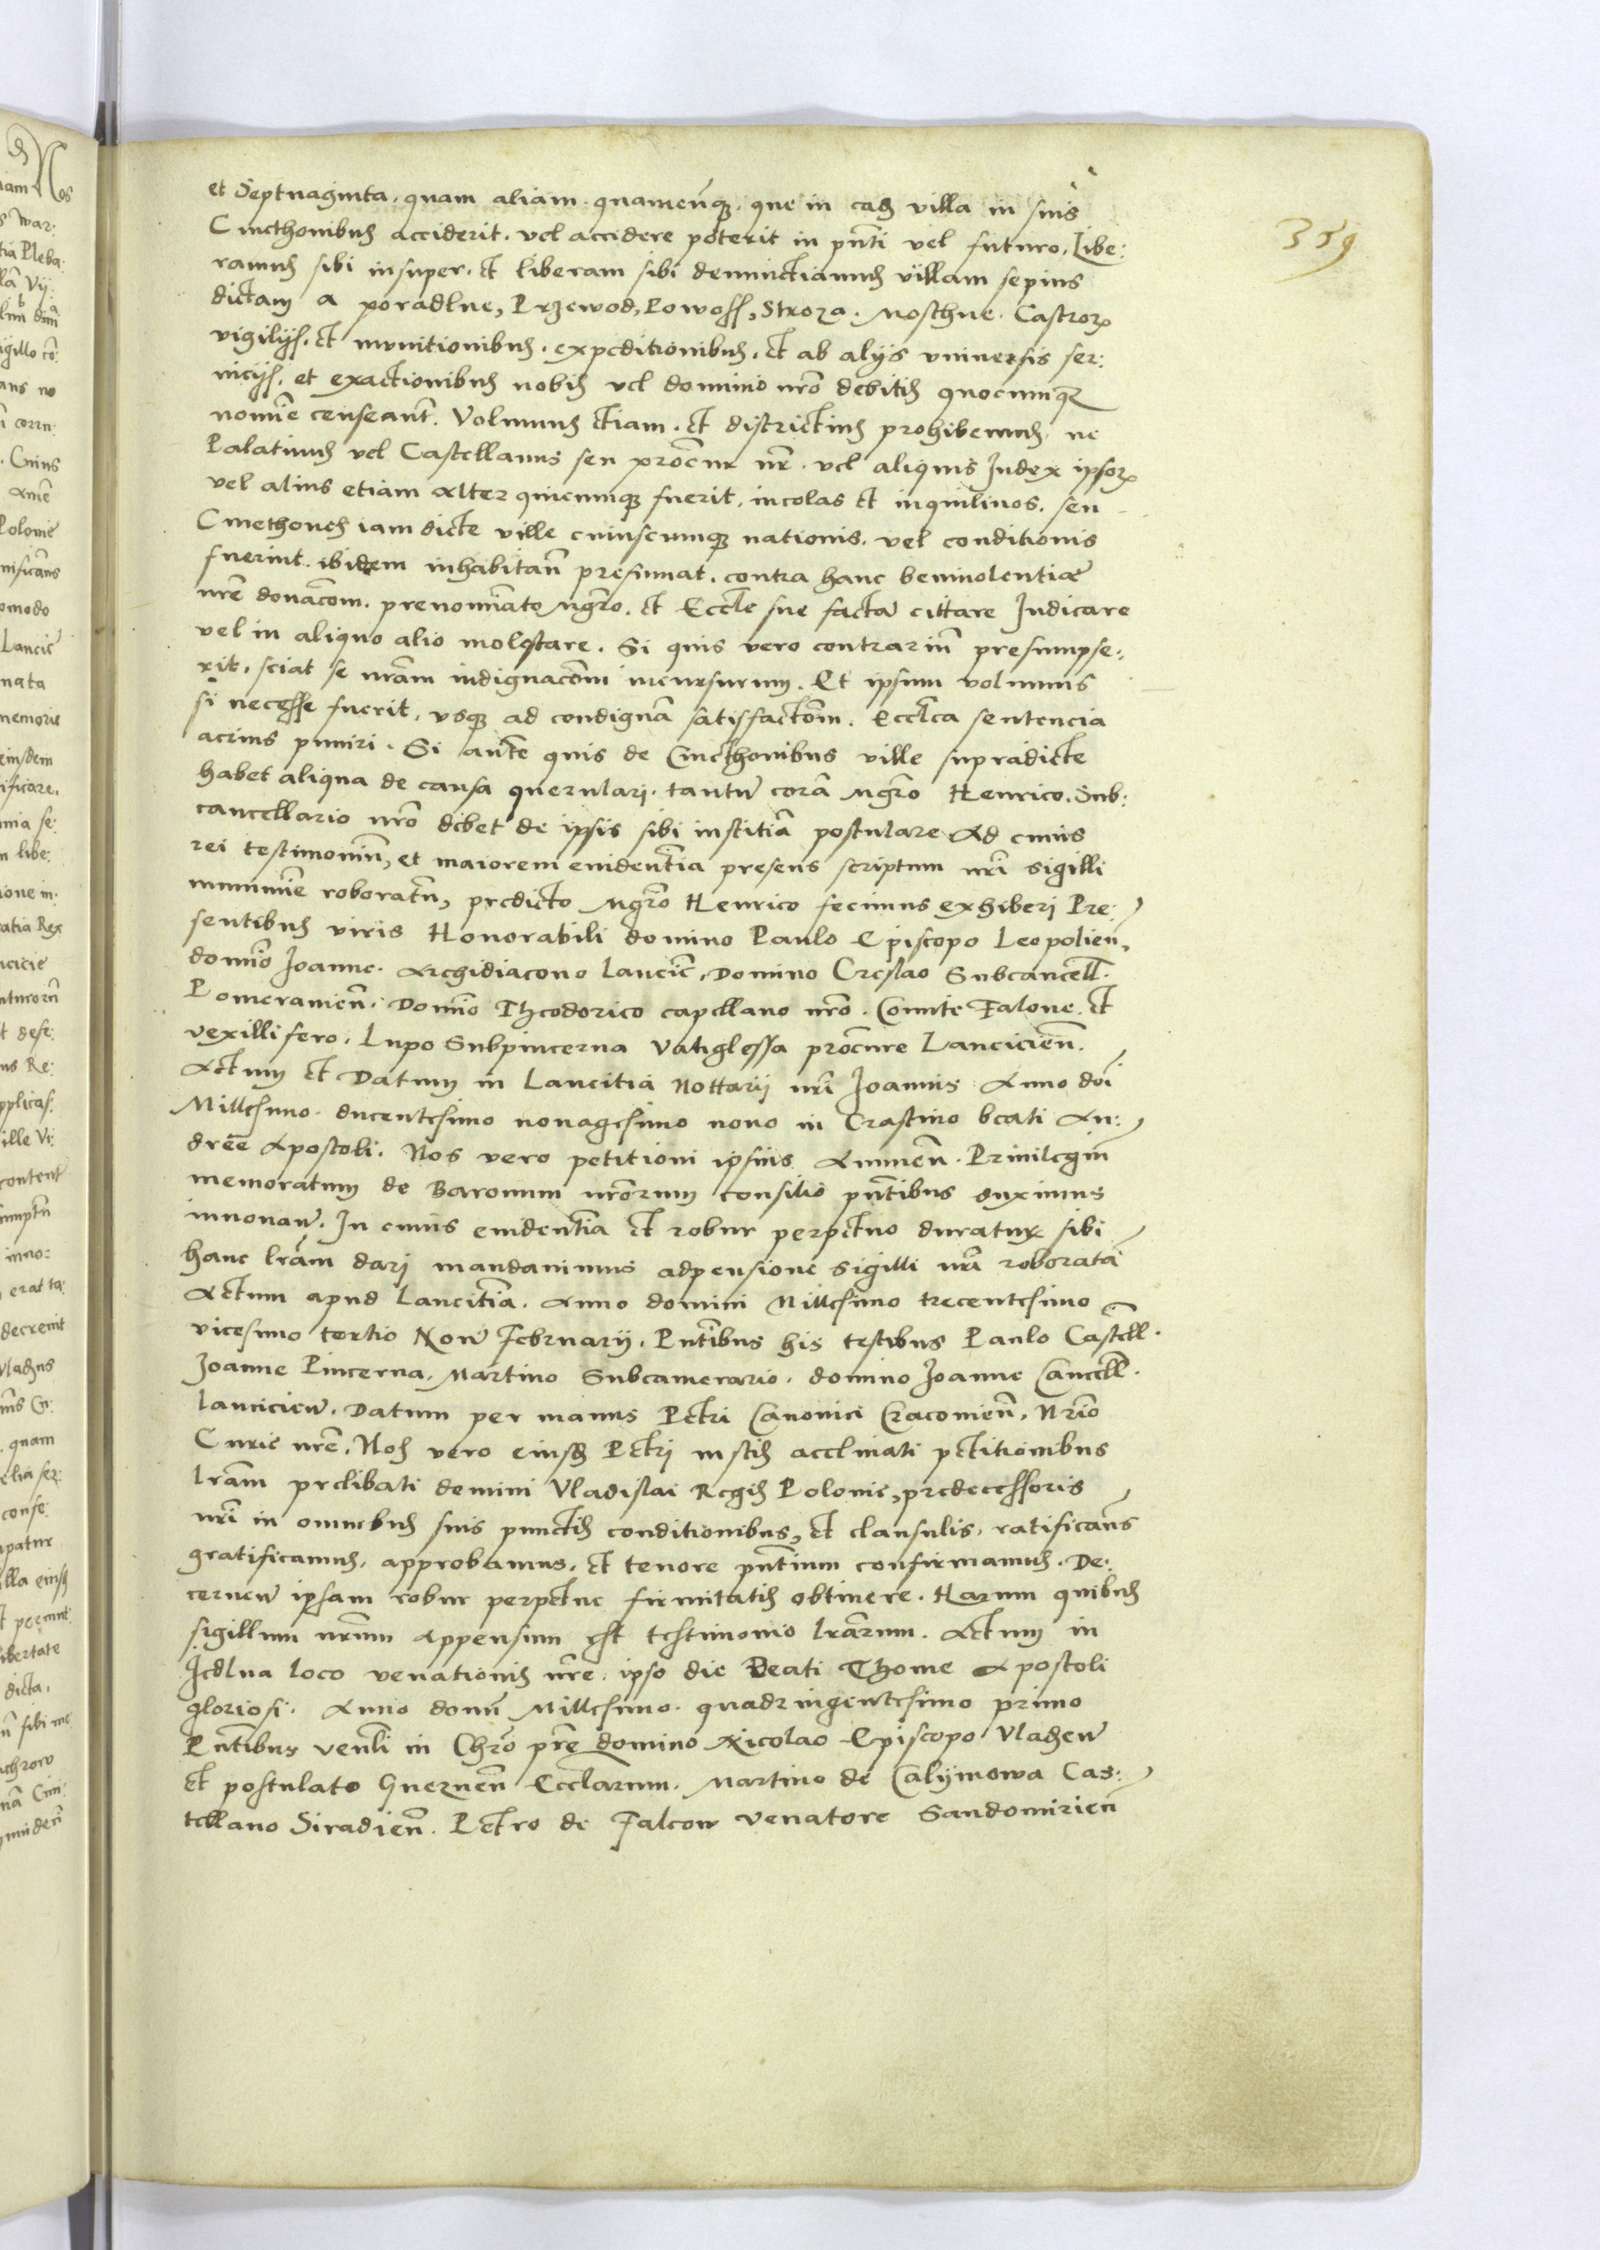 et Septuaginta. quam aliam. quamcunq3. que in eadē villa in suis
Cmethonibus acciderit. vel accidere poterit in pñti vel futuro. Libe:
359
ramus sibi insuper. et liberam sibi denunctiamus villam sepius
dictam a poradlne, Przewod, Powoss, Stroza. Nosthne. Castrorz
vigilijs. et munitionibus. expeditionibus. et ab alijs vniuersis ser:
uicijs. et exactionibus nobis vel domino nrõ debitis quocumq3
nomine censeant̃. Volumus etiam. et districtius prohibemus. ne
Palatinus vel Castellanus seu procũr nr̃. vel aliquis Iudex ipsorz
vel alius etiam alter quicumq3 fuerit. incolas et inquilinos. seu
Cmethones iam dicte ville cuiuscumq3 nationis. vel conditionis
fuerint. ibidem inhabitañ presumat. contra hanc beniuolentiæ
nrẽ donacõm. prenominato Mgrõ. et Eccle sue facta cittare Iudicare
vel in aliquo alio molestare. Si quis vero contrariũ presumpse:
rit, sciat se nrãm indignacõm incursurum. Et ipsum volumus
si necesse fuerit, vsq3 ad condignã satisfactõm. Eccĩca sentencia
acrius puniri. Si aute quis de Cmethonibus ville supradicte
habet aliqua de causa querulari. tantum corã Mgrõ Henrico. Sub:
cancellario nrõ debet de ipsis sibi iustitiã postulare Ad cuius
rei testimoniũ, et maiorem euidentia presens scriptum nri sigilli
munimie roboratũ, predicto Mgrõ Henrico fecimus exhiberi Pre:
sentibus viris Honorabili domino Paulo Episcopo Leopolieñ,
domino Ioanne. Archidiacono Lancic̃, Domino Creslao Subcancell.
Pomeranieñ. Domino Theodorico capellano nrõ. Comite Falone. et
vexillifero. Lupo Subpincerna Vatiglessa procũre Lancicieñ.
Actum et Datum in Lancitia Nottarij nri Ioannis Anno doi
Millesimo. ducentesimo nonagesimo nono in Crastino beati An:
dreẽ Apostoli. Nos vero petitioni ipsius Annueñ. Priuilegiũ
memoratum de Baronum nrõrum consilio pñtibus duximus
innouañ. In cuius euidentia et robur perpetuo duratur sibi
hanc lrãm dari mandauimus adpensione sigilli nri roboratã
Actum apud Lancitia. Anno domini Millesimo trecentesimo
vicesimo tertio Noñ Februarij. Pñtibus his testibus Paulo Castell.
Ioanne Pincerna, Martino Subcamerario. domino Ioanne Cancell.
Lancicieñ. Datum per manus Petri Canonici Cracouieñ. Nrĩo
Curie nrẽ. Nos vero eiusd Petri iustis acclinati petitionibus
lrãm prelibati domini Vladislai Regis Polonie, predecessoris
nri in omnibus suis punctis conditionibus, et clausulis. ratificañs
gratificamus, approbamus, et tenore pñtium confirmamus. De:
cerneñ ipsam robur perpetue firmitatis obtinere. Harum quibus
sigillum nrũm appensum est testimonio lrãrum. Actum in
Iedlna loco venationis nre. ipso die Beati Thome Apostoli
gloriosi. Anno domĩ Millesimo. quadringentesimo primo
Pñtibus venli in Chrõ prẽ domino Nicolao Episcopo Vladeñ
et postulato Gnezneñ Ecclarum. Martino de Calijnowa Cas:
tellano Siradieñ. Petro de Falcow Venatore Sandomirieñ